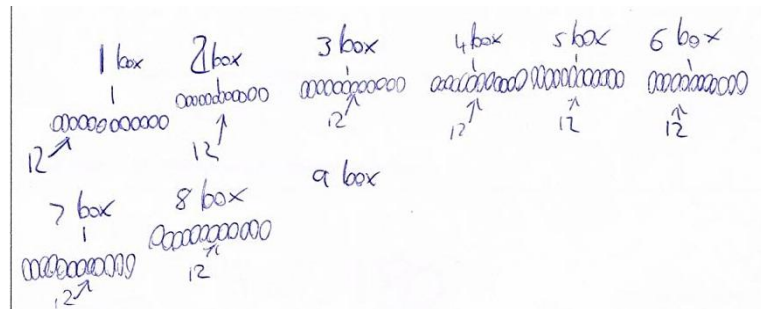 1 box 2 box 3 box 4 box 5 box 6 box
12 12 12 12 12 12
7 box 8 box 9 box
12 12